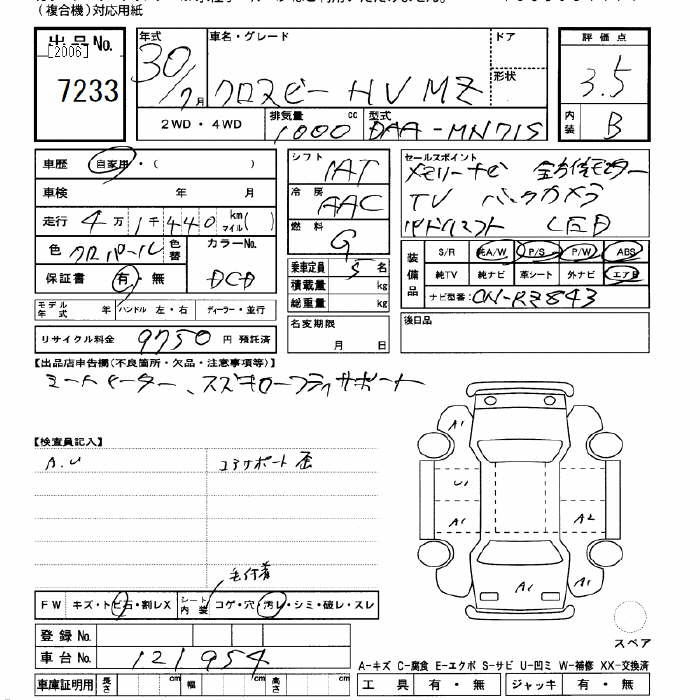 (複合機)対応用紙
出品No.
[2006]
7233
年式 車名・グレード ドア
30/7月 クロスビー HV MZ 形状
評価点
3.5
内装 B
2WD・4WD 排気量 cc 型式
1000 DAA-MN71S
車歴 自家用・( )
車検 年 月
走行 4万1千440km マイル( )
色 クロパール 色替 カラーNo.
保証書 有・無 DCD
モデル年式 年 ハンドル 左・右 ディーラー・並行
リサイクル料金 9750 円 預託済
シフト IAT
冷房 AAC
燃料 G
乗車定員 5 名
積載量 kg
総重量 kg
名変期限
月 日
セールスポイント
メモリーナビ 全方位モニター
TV バックカメラ
パドルシフト LED
装備品 S/R 純A/W P/S P/W ABS
純TV 純ナビ 革シート 外ナビ エアB
ナビ型番: CN-RZ843
後日品
【出品店申告欄(不良箇所・欠品・注意事項等)】
シートヒーター、スズキセーフティサポート
【検査員記入】
A.U コアサポート歪
毛付着
FW キズ・トビ石・割レX シート内装 コゲ・穴・汚レ・シミ・破レ・スレ
登録No.
車台No. 121954
車庫証明用 長さ cm 幅 cm 高さ cm
A1
U1
A1 A2
A1
スペア
A-キズ C-腐食 E-エクボ S-サビ U-凹ミ W-補修 XX-交換済
工具 有・無 ジャッキ 有・無